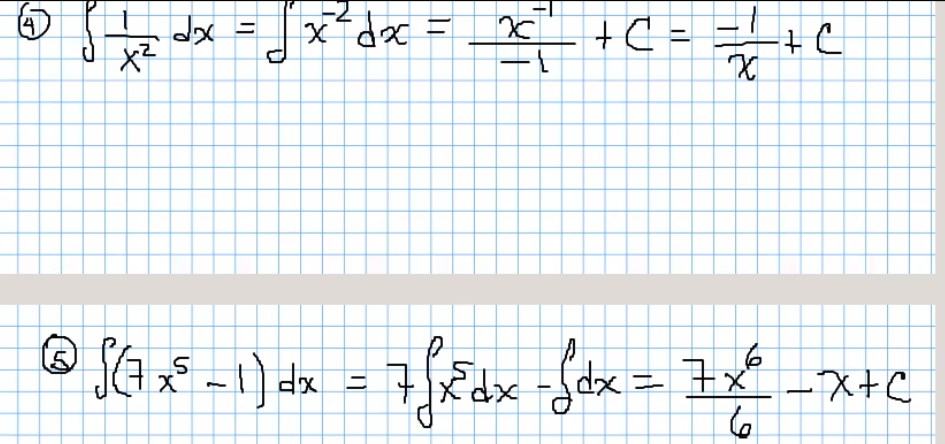 ④ ∫ 1/x² dx = ∫ x⁻² dx = x⁻¹/-1 + C = -1/x + C
⑤ ∫(7x⁵ - 1) dx = 7∫x⁵dx - ∫dx = 7x⁶/6 - x + C